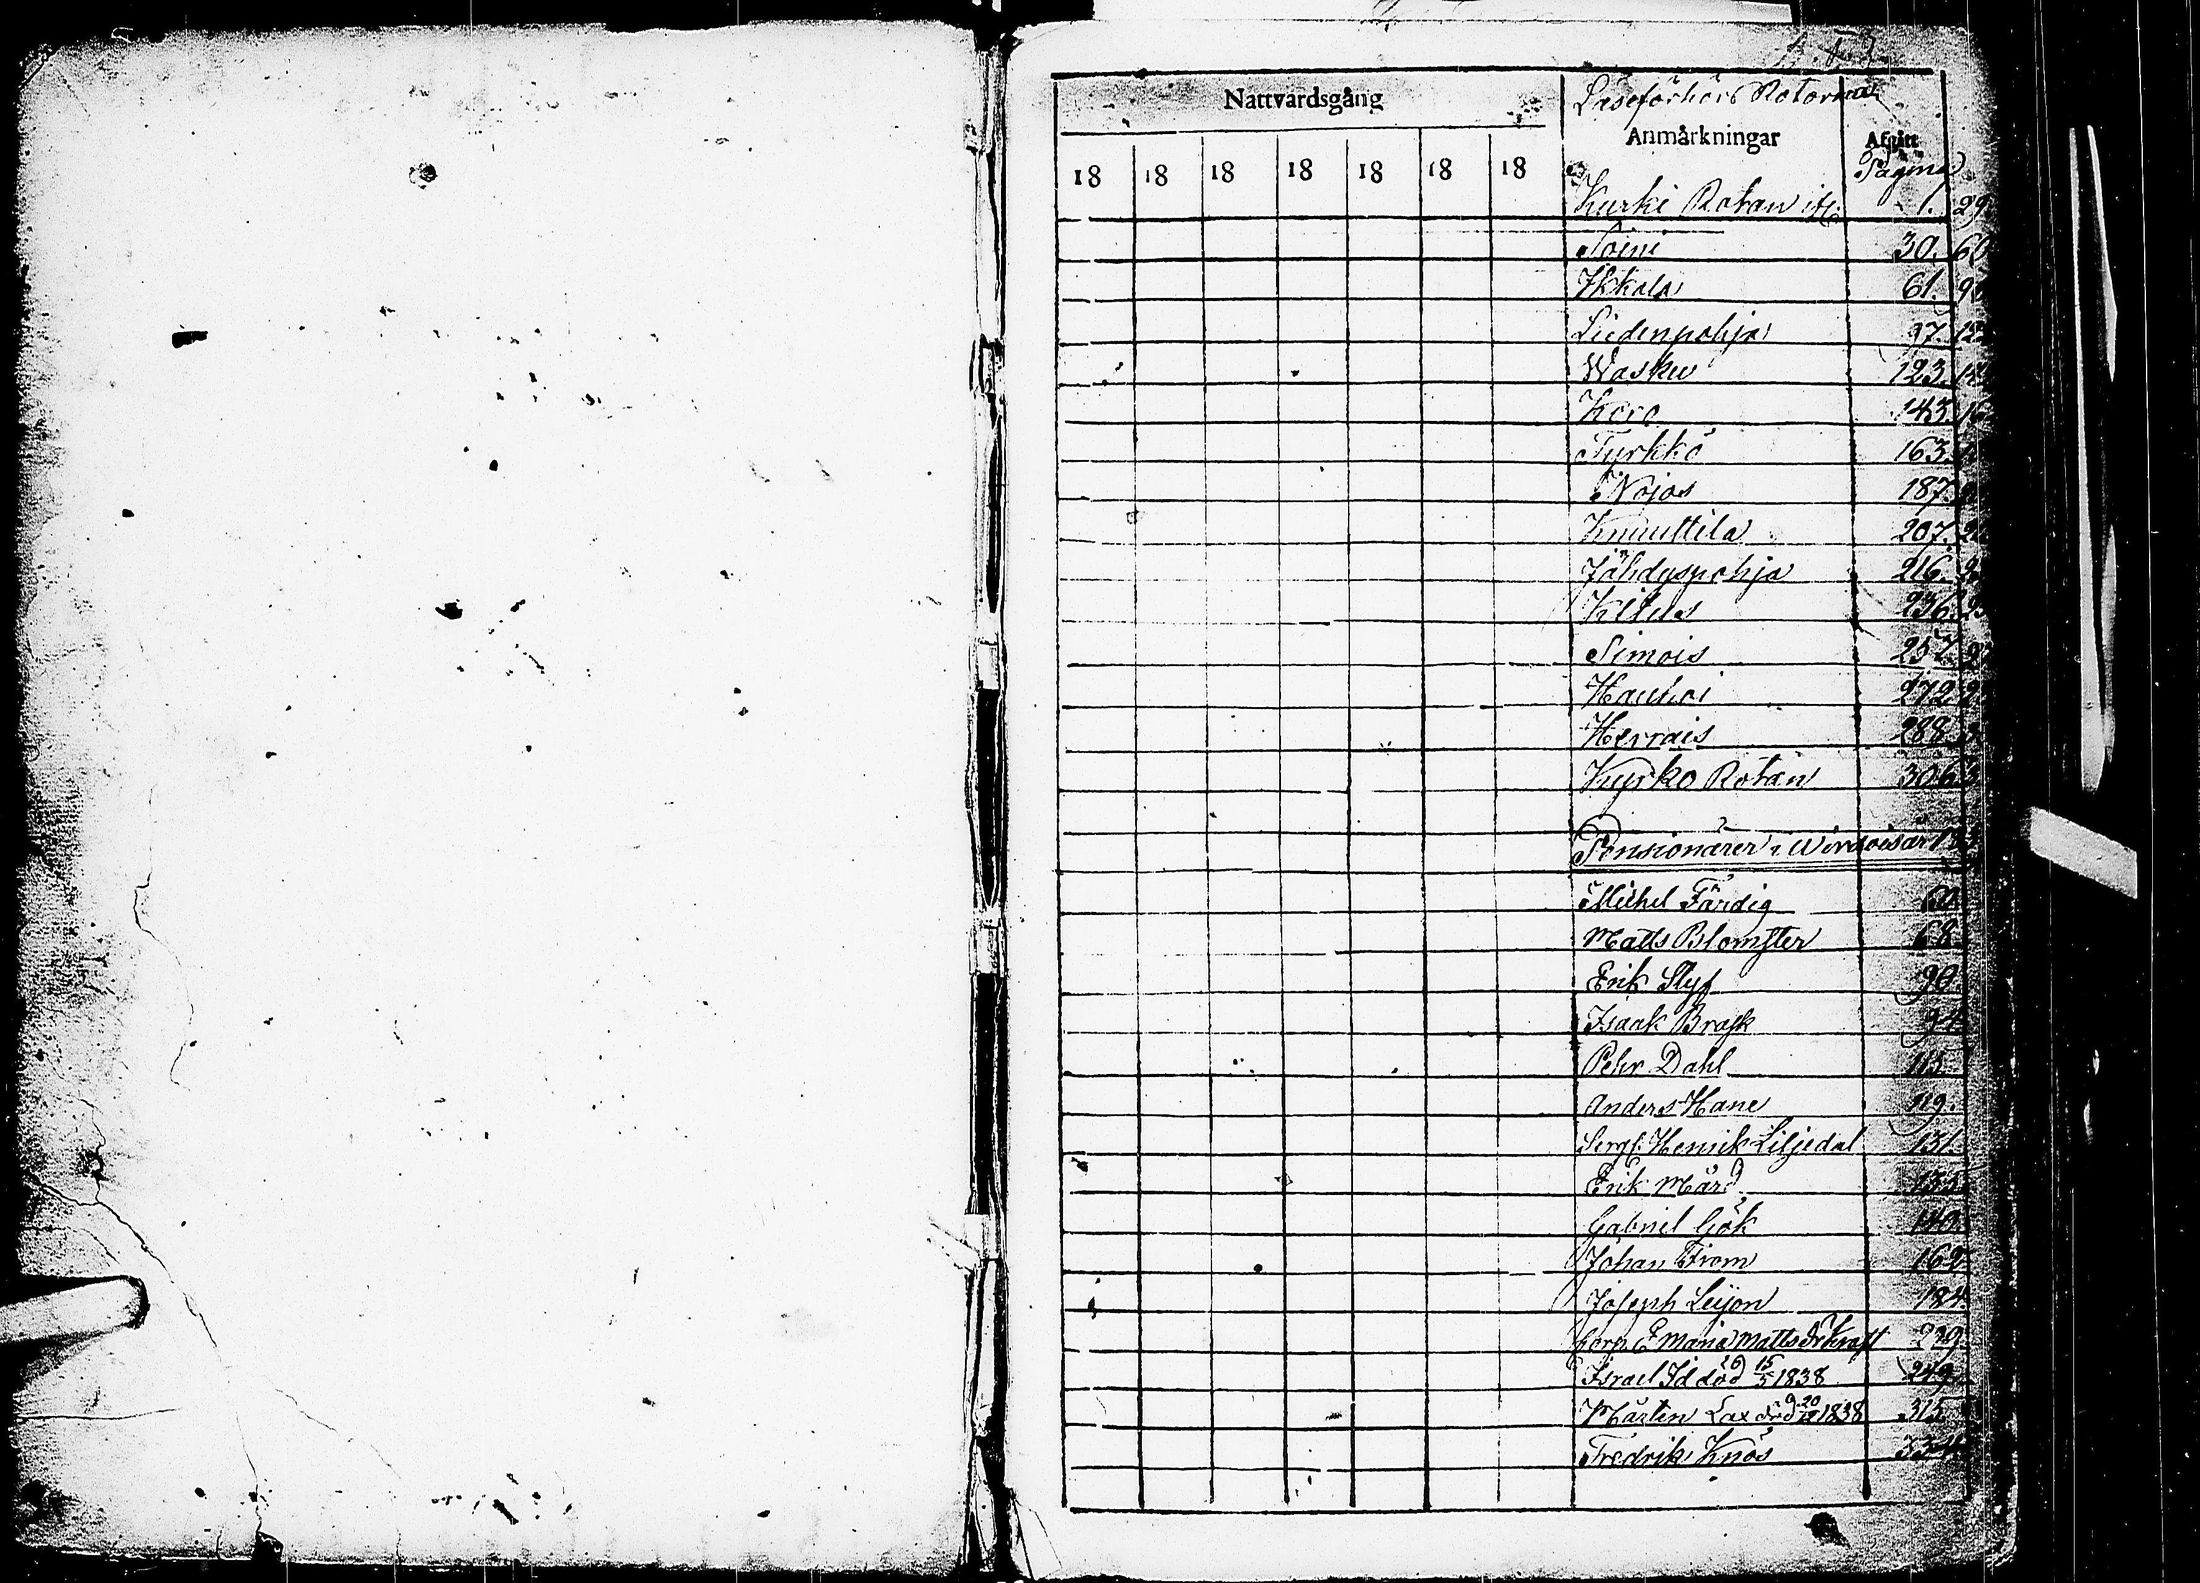 Nattvardsgång
Läseförhörs Rotorna
Anmärkningar
Afgått
Pagina
18 18 18 18 18 18 18
Kurki Rotan 1. 29
Soini 30. 60
Ikkala 61.
Liedenpohja 97.
Wasku 123.
Kero 143.
Turkko 163.
Nojos 187.
Knuuttila 207.
Jähdyspohja 216.
Kitus 236.
Simois 257
Hauhoi 272
Herrais 288
Kyrko Rotan 306
Pensionärer i Wirdois år
Michel Färdig 60
Matts Blomster 68
Erik Styf 90
Isaak Brask 94
Pehr Dahl 115
Anders Hane 119.
Serg: Henrik Liljedal 131.
Erik Mård 133
Gabriel Gök 140
Johan From 162
Joseph Leijon 184.
Corp. E. Maria Mattsdr Kraft 229.
Israel Id död 15/5 1838 249.
Mårten Lax död 1838 315
Fredrik Knös 334